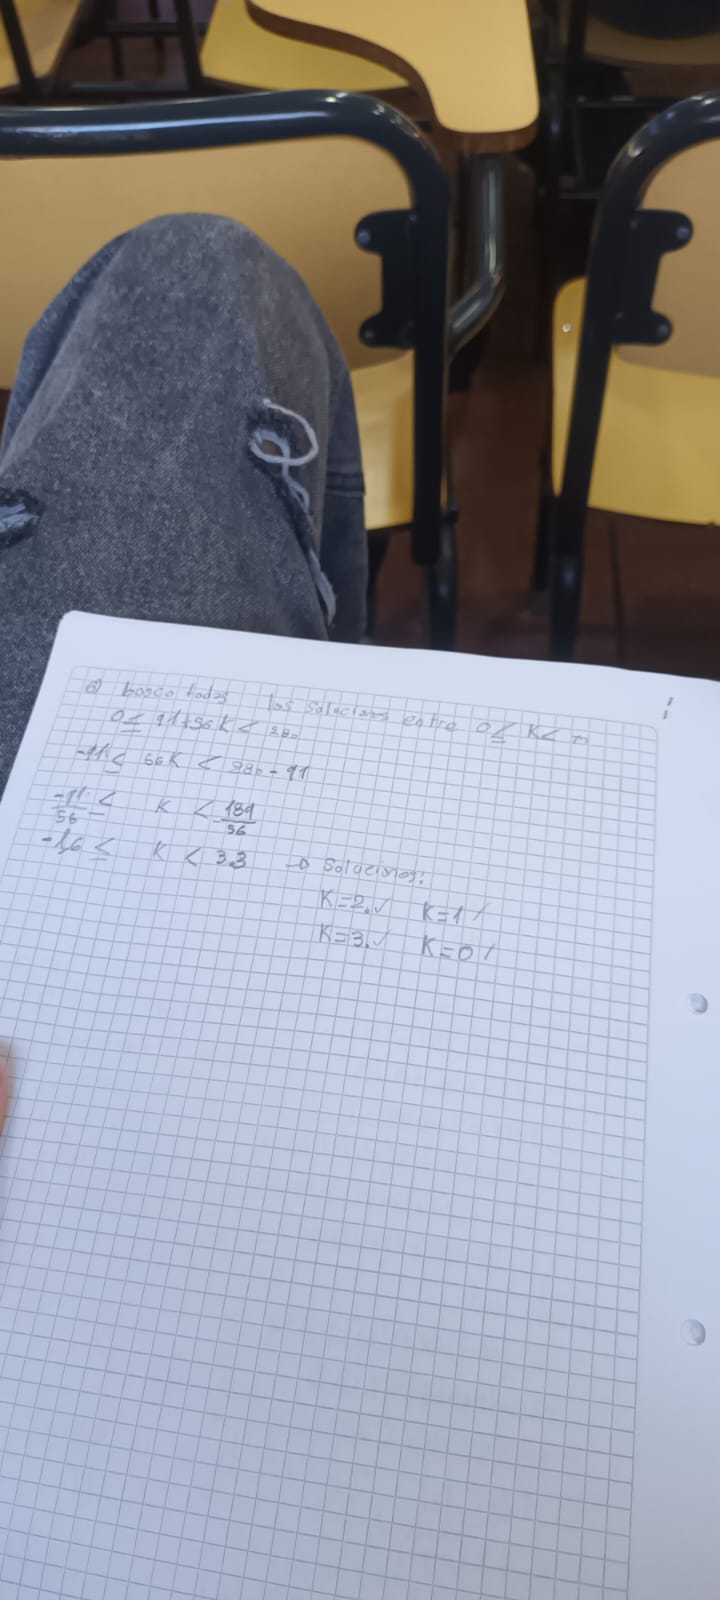 6) busco todas las soluciones entre 0 ≤ K < m
0 ≤ 91+56K < 280
-91 ≤ 56K < 280-91
-91/56 ≤ K < 189/56
-1,6 ≤ K < 3.3 → Soluciones:
K=2.✓ K=1 /
K=3.✓ K=0 /